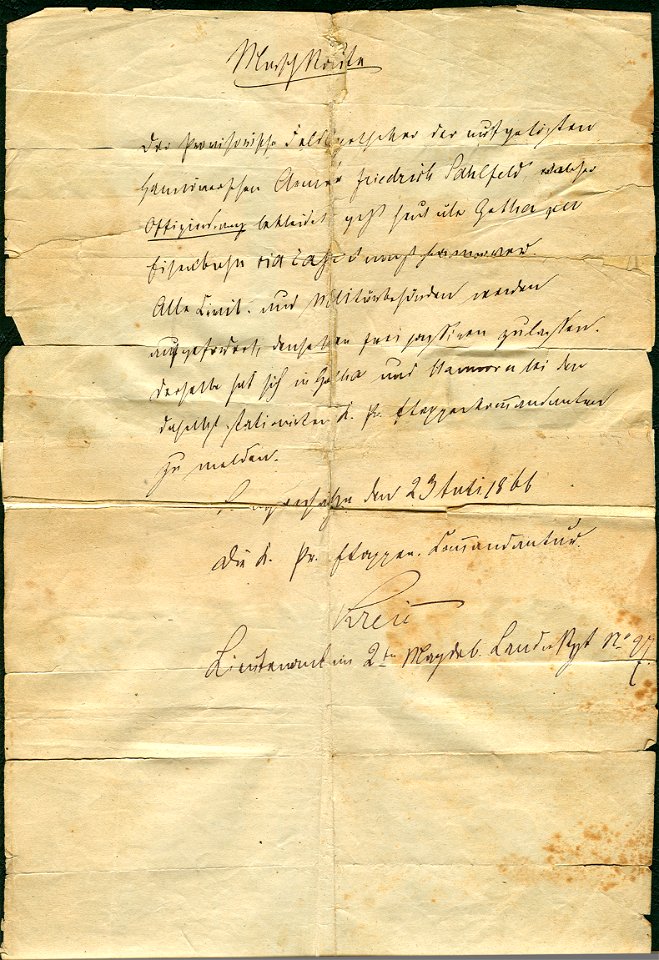 Marsch Route
Der Provisorische Feldapotheker der aufgelösten
Hannöverschen Armee Friedrich Sahlfeld welcher
Offiziersrang bekleidet geht heut über Gotha per
Eisenbahn via Cassel nach Hannover.
Alle Civil- und Militärbehörden werden
aufgefordert, denselben frei passiren zu lassen.
Derselbe hat sich in Gotha und Hannover bei den
daselbst stationirten K. Pr. Etappenkommandanten
zu melden.
Langensalza den 23 Juli 1866
Die K. Pr. Etappen-Commandantur.
Lieutenant im 2ten Magdeb. Landw Rgt No 27